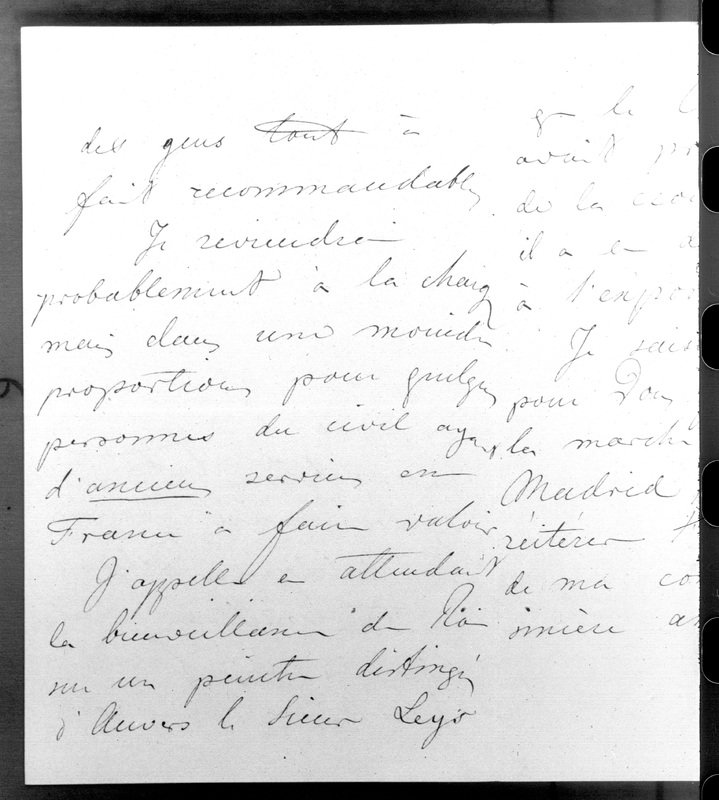 des gens tout à
fait recommandables
Je reviendrai
probablement à la charge
mais dans une moindre
proportion pour quelques
personnes du civil ayant
d'anciens services en
France à faire valoir
J'appelle en attendant
la bienveillance du Roi
sur un peintre distingué
d'Anvers le Sieur Leys
& le
avait
de la
il a e
à l'expo
Je saisi
pour Don
la march
Madrid
réitérer
de ma co
sincère